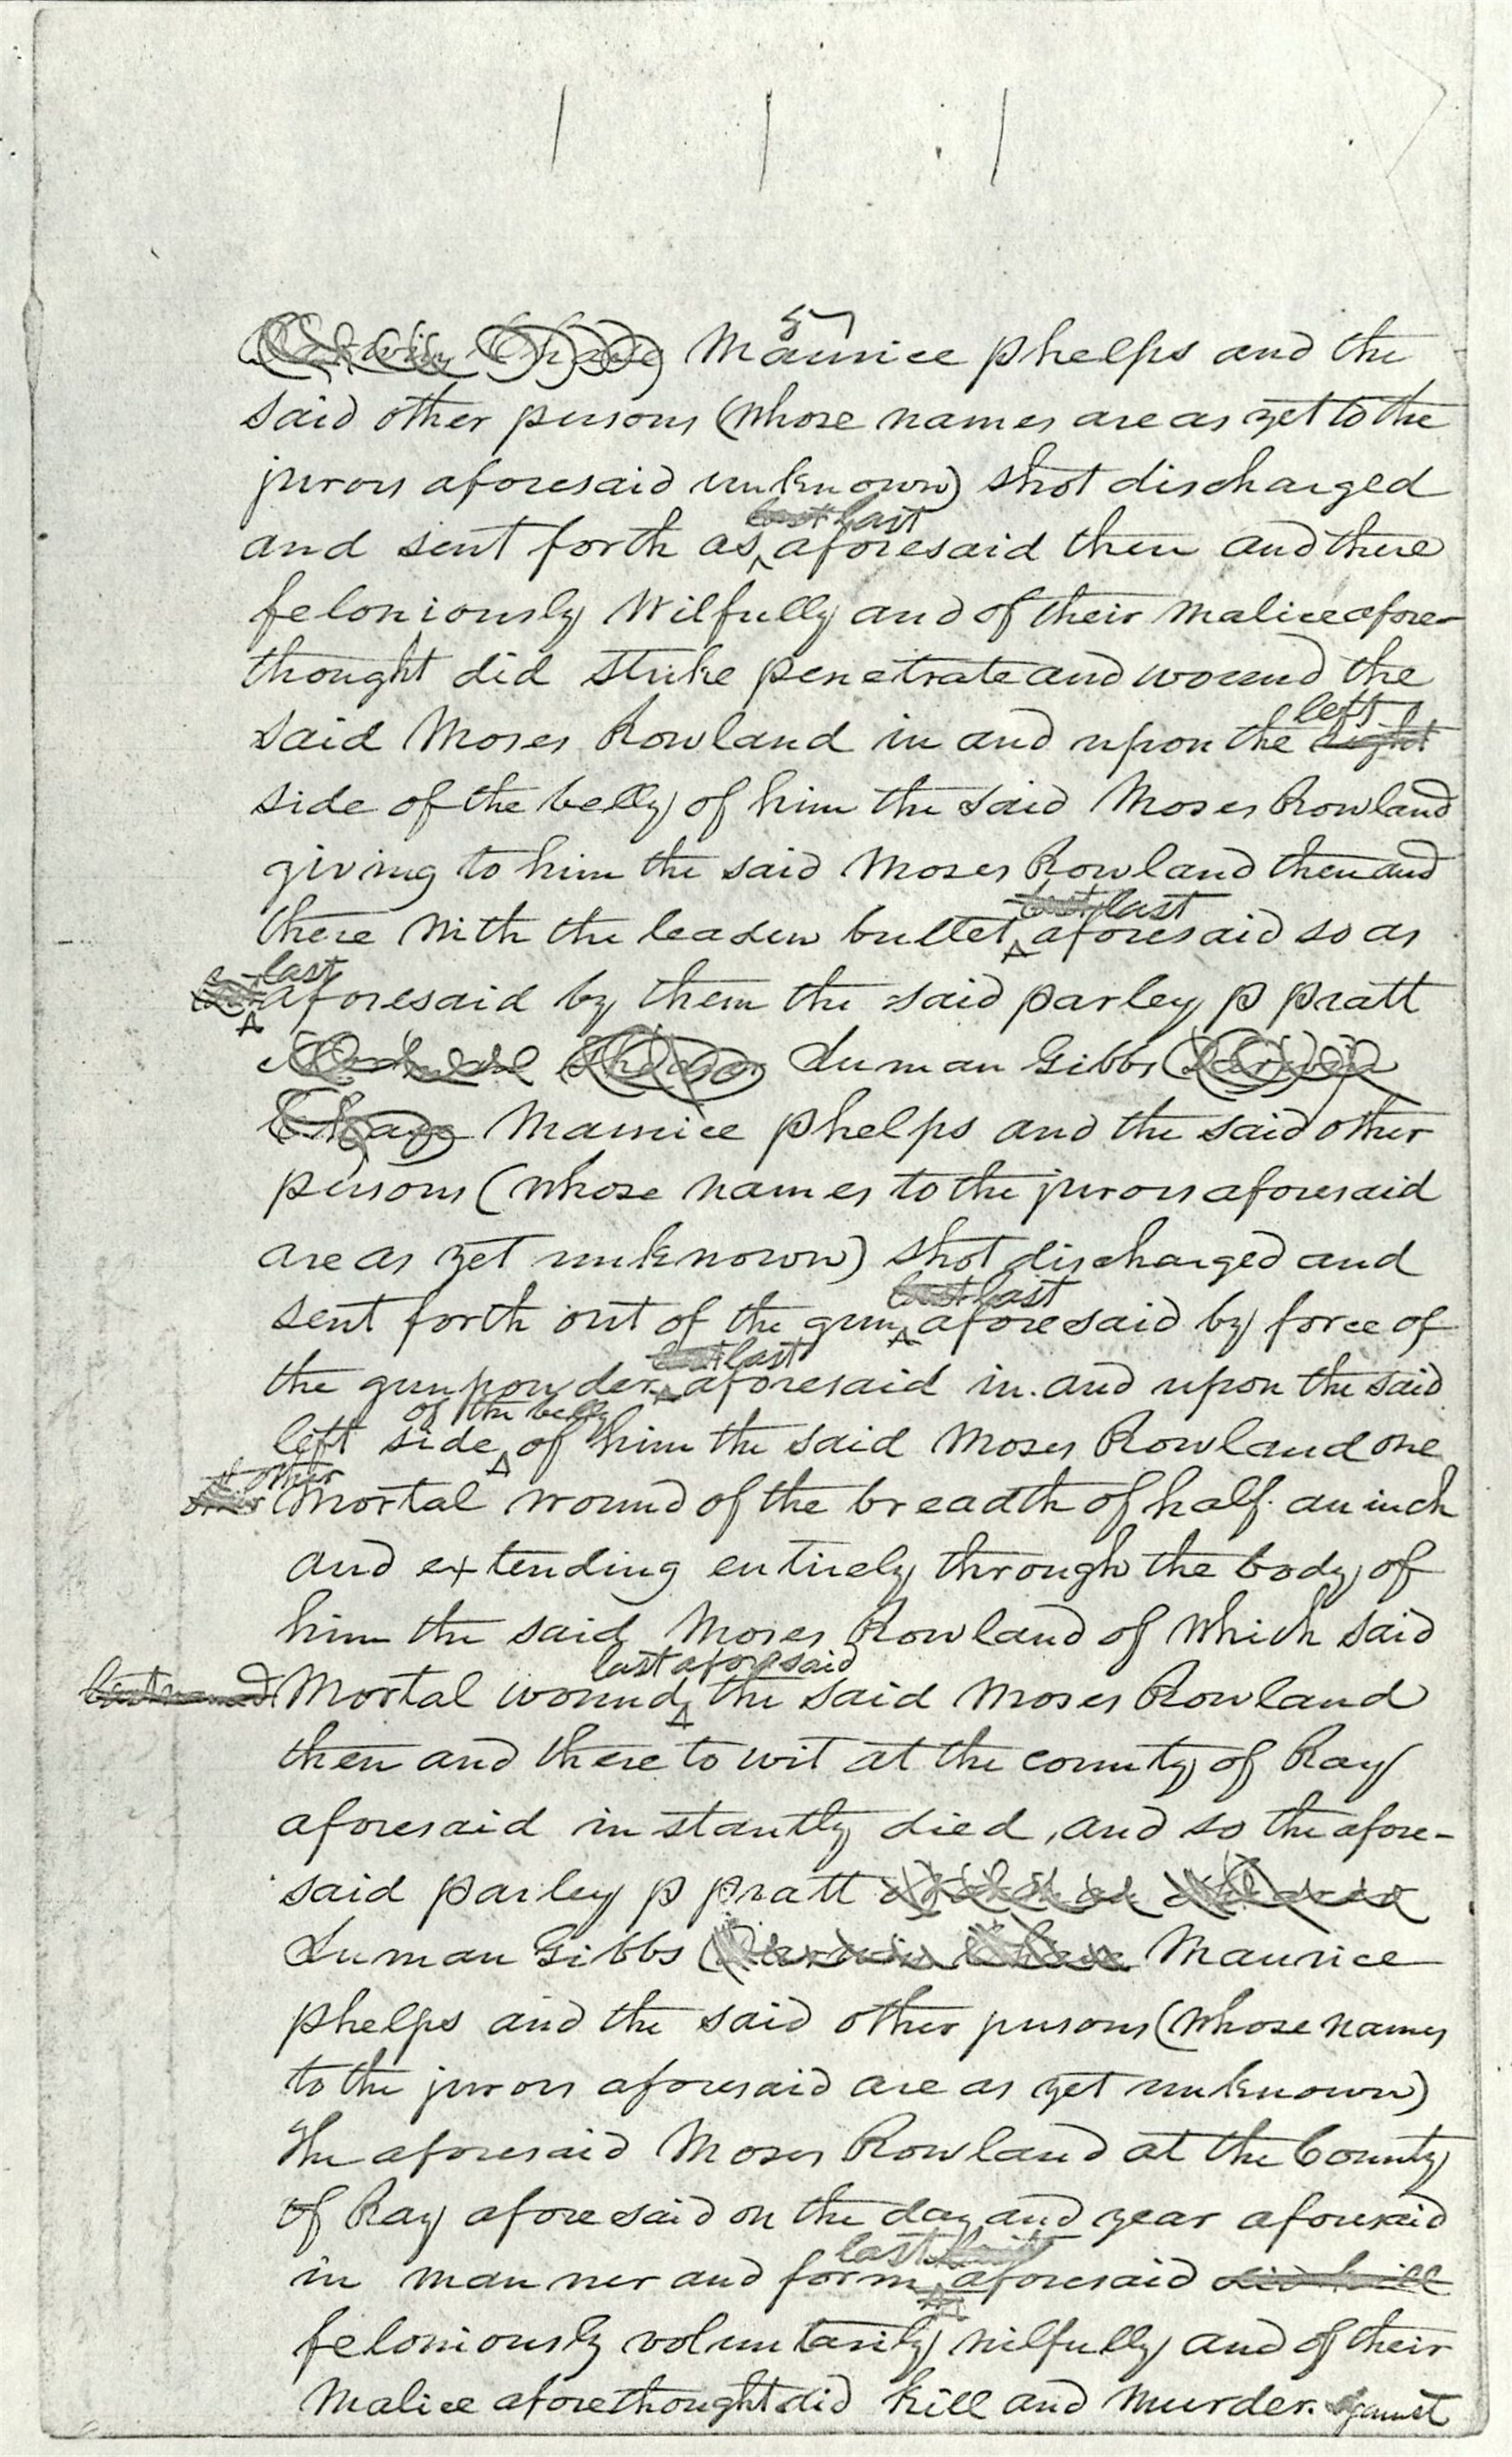 Maurice phelps and the
said other persons (whose names are as yet to the
jurors aforesaid unknown) shot discharged
last
and sent forth as aforesaid then and there
feloniously Wilfully and of their malice afore-
thought did strike penetrate and wound the
left
said Moses Rowland in and upon the right
side of the belly of him the said Moses Rowland
giving to him the said Moses Rowland then and
last
there with the leaden bullet aforesaid so as
last
aforesaid by them the said parley p pratt
Luman Gibbs Darwin
Chase Maurice phelps and the said other
persons (whose names to the jurors aforesaid
are as yet unknown) shot discharged and
last
sent forth out of the gun aforesaid by force of
last
the gunpowder aforesaid in and upon the said
of the belly
left side of him the said Moses Rowland one
other
Mortal wound of the breadth of half an inch
and extending entirely through the body of
him the said Moses Rowland of which said
last aforesaid
Mortal wound the said Moses Rowland
then and there to wit at the county of Ray
aforesaid instantly died, and so the afore-
said parley p pratt
Luman Gibbs Darwin Chase Maurice
phelps and the said other persons (whose names
to the jurors aforesaid are as yet unknown)
The aforesaid Moses Rowland at the County
of Ray aforesaid on the day and year aforesaid
last
in manner and form aforesaid did kill
feloniously voluntarily wilfully and of their
Malice aforethought did kill and murder. against